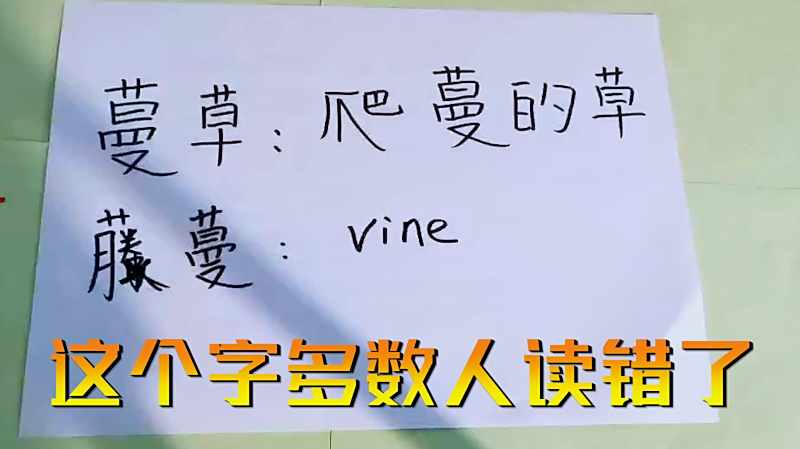 蔓草：爬蔓的草
藤蔓：vine
这个字多数人读错了